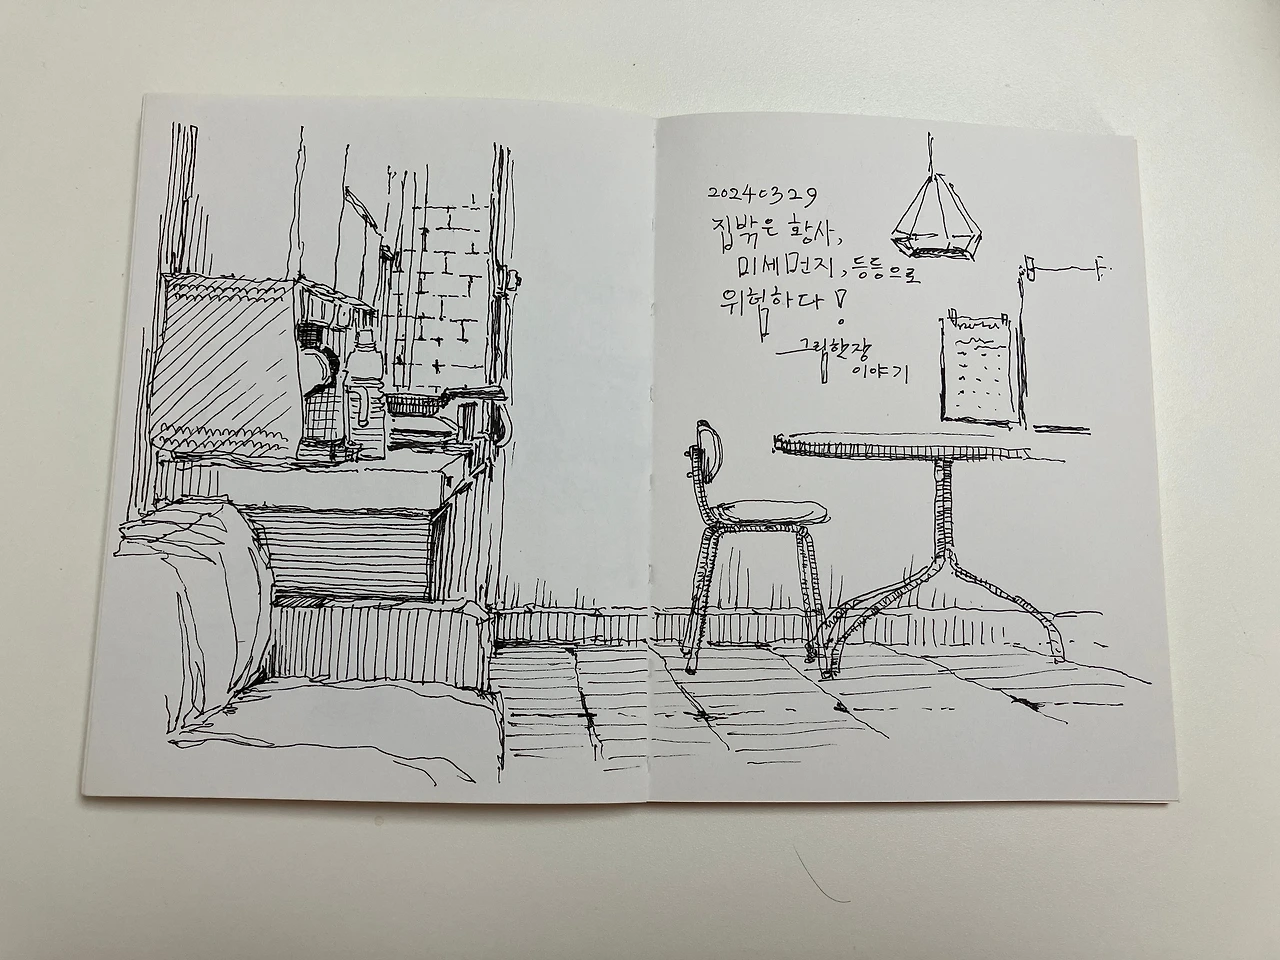 20240329
집밖은 황사,
미세먼지, 등등으로
위험하다!
그림한장
이야기